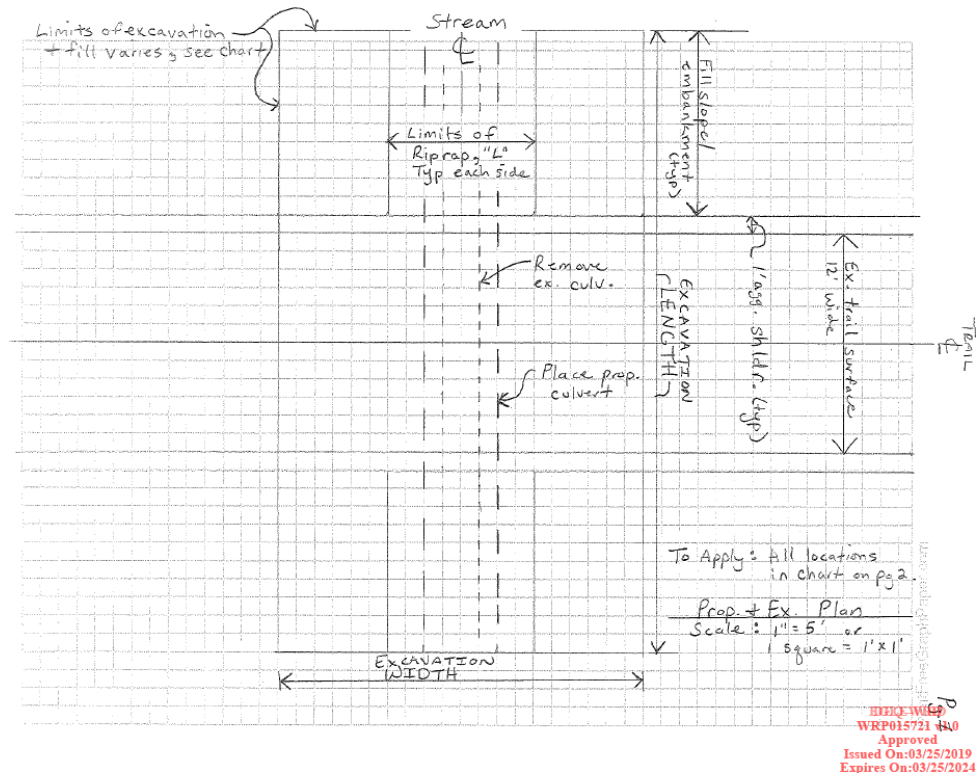 Stream
℄
Limits of excavation
+ fill varies, see chart
Limits of
Riprap, "L"
Typ each side
Fill slope/
embankment
(typ)
Remove
ex. culv.
Place prop.
culvert
EXCAVATION
LENGTH
1' agg. shldr. (typ)
Ex. trail surface
12' wide
TRAIL
℄
To Apply: All locations
in chart on pg 2.
Prop. + Ex. Plan
Scale: 1" = 5' or
1 square = 1' x 1'
EXCAVATION
WIDTH
Pg 1
WRP015721 v1.0
Approved
Issued On:03/25/2019
Expires On:03/25/2024